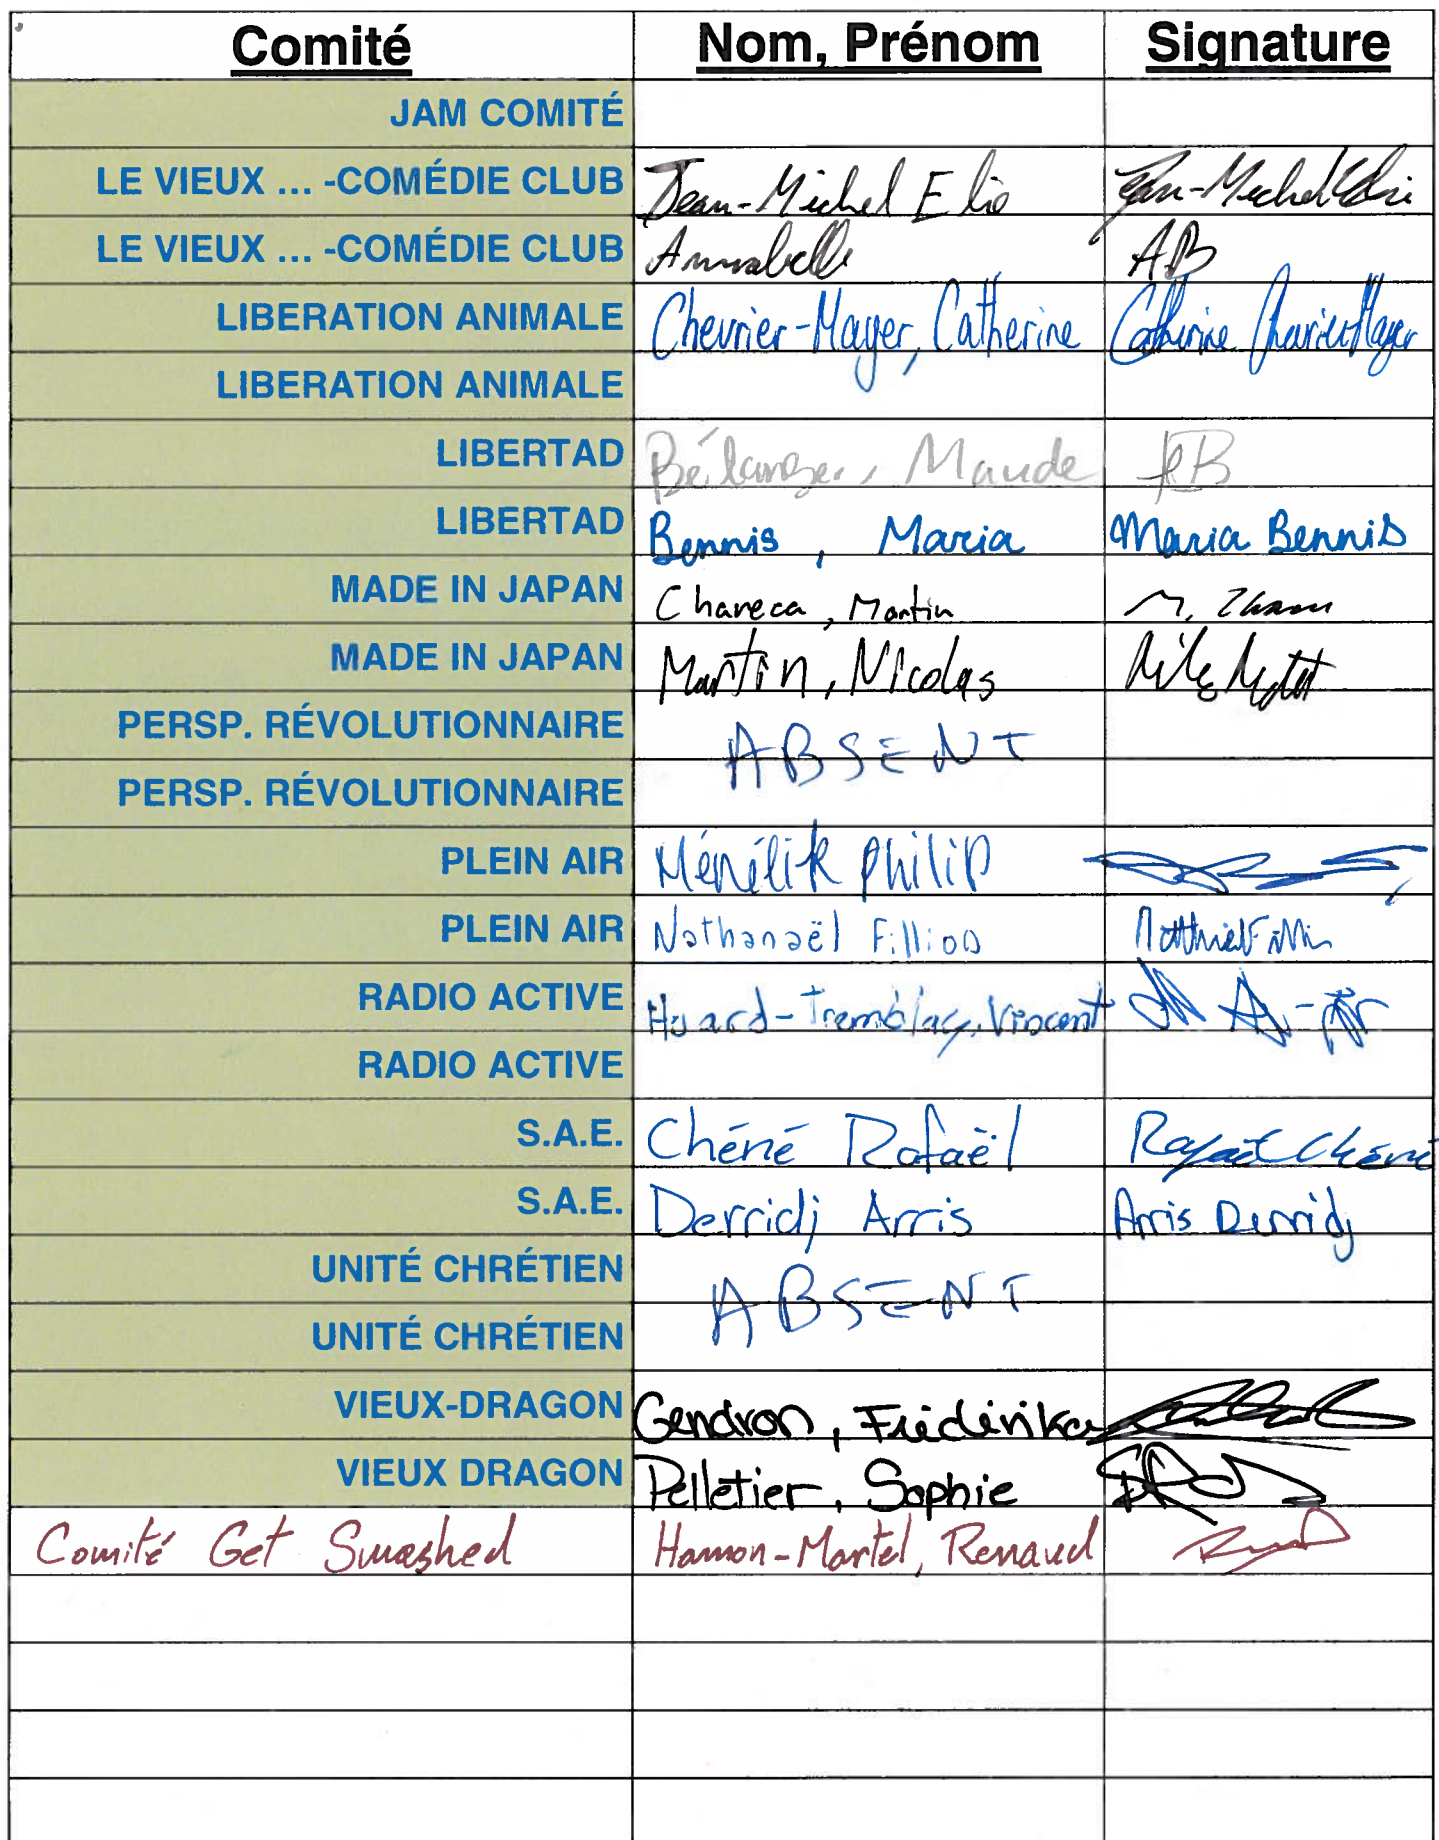 Comité Nom, Prénom Signature
JAM COMITÉ
LE VIEUX ... -COMÉDIE CLUB Jean-Michel Elie Jean-Michel Elie
LE VIEUX ... -COMÉDIE CLUB Annabelle AB
LIBERATION ANIMALE Chevrier-Mayer, Catherine Catherine Chevrier Mayer
LIBERATION ANIMALE
LIBERTAD Bélanger, Maude
LIBERTAD Bennis, Maria Maria Bennis
MADE IN JAPAN Martin M.
MADE IN JAPAN Martin, Nicolas
PERSP. RÉVOLUTIONNAIRE ABSENT
PERSP. RÉVOLUTIONNAIRE
PLEIN AIR Ménélik Philip
PLEIN AIR Nathanaël Fillion
RADIO ACTIVE Huard-Tremblay, Vincent
RADIO ACTIVE
S.A.E. Chéné Rafaël Rafaël Chéné
S.A.E. Derridj Arris Arris Derridj
UNITÉ CHRÉTIEN ABSENT
UNITÉ CHRÉTIEN
VIEUX-DRAGON Gendron, Frédérika
VIEUX DRAGON Pelletier, Sophie
Comité Get Smashed Hamon-Martel, Renaud